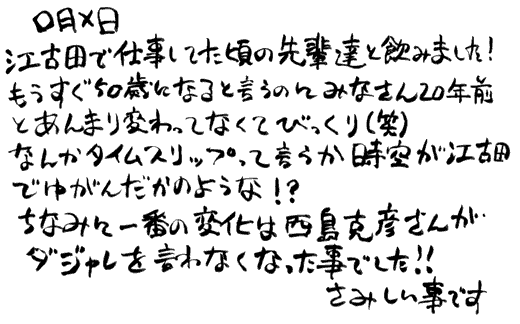 ○月×日
江古田で仕事してた頃の先輩達と飲みました!
もうすぐ50歳になると言うのにみなさん20年前
とあんまり変わってなくてびっくり(笑)
なんかタイムスリップって言うか時空が江古田
でゆがんだかのような!?
ちなみに一番の変化は西島克彦さんが
ダジャレを言わなくなった事でした!!
さみしい事です